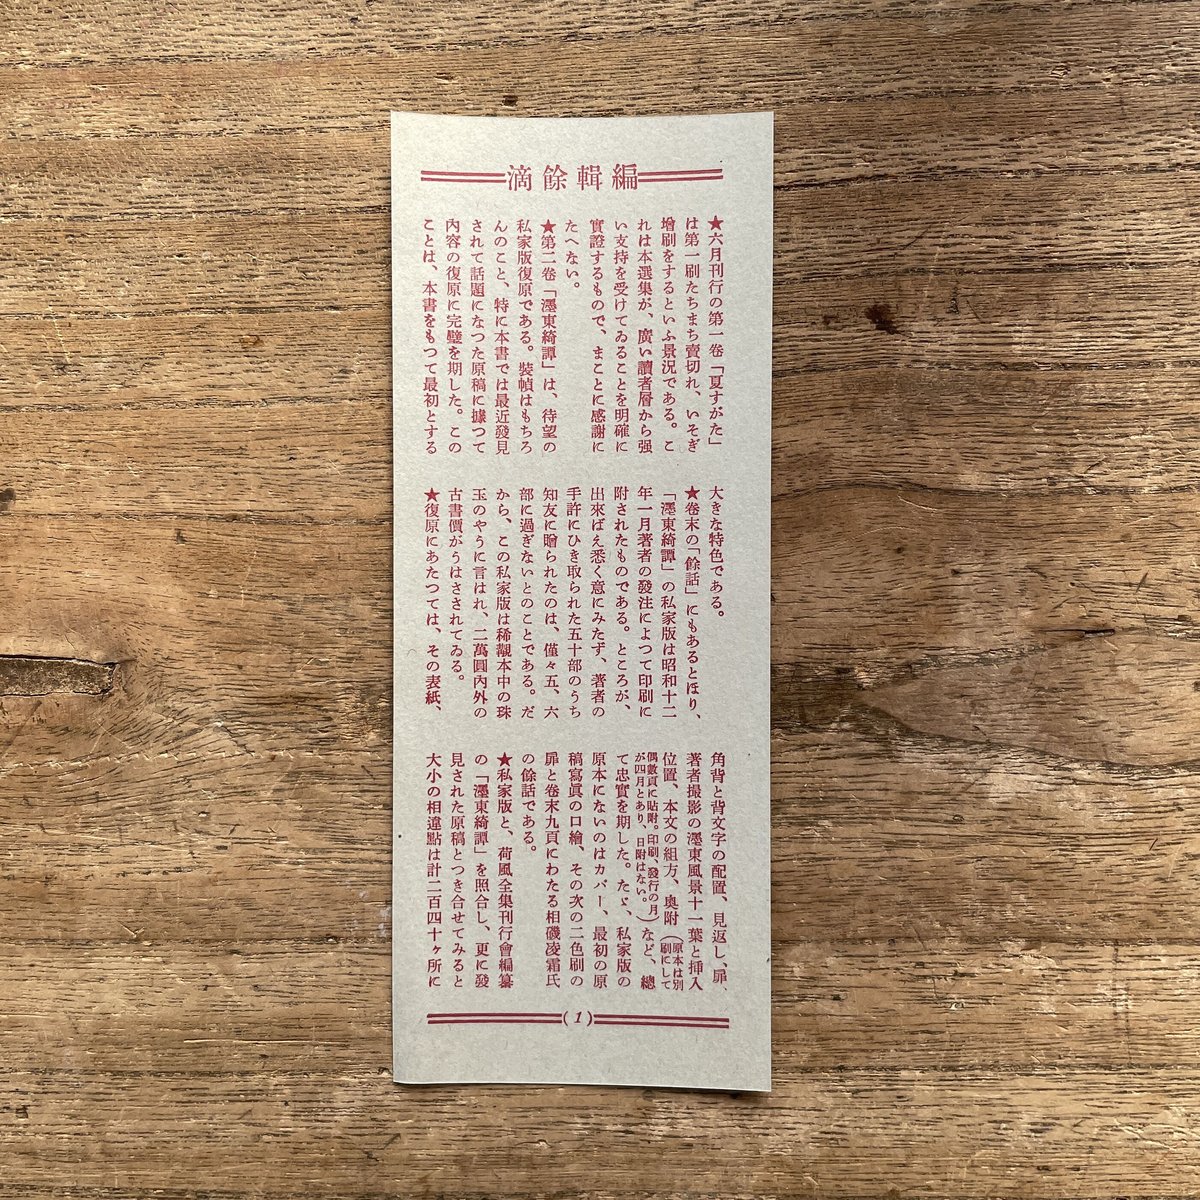 編輯餘滴
★六月刊行の第一卷「夏すがた」
は第一刷たちまち賣切れ、いそぎ
增刷をするといふ景況である。こ
れは本選集が、廣い讀者層から强
い支持を受けてゐることを明確に
實證するもので、まことに感謝に
たへない。
★第二卷「濹東綺譚」は、待望の
私家版復原である。裝幀はもちろ
んのこと、特に本書では最近發見
されて話題になつた原稿に據つて
內容の復原に完璧を期した。この
ことは、本書をもつて最初とする
大きな特色である。
★卷末の「餘話」にもあるとほり、
「濹東綺譚」の私家版は昭和十二
年一月著者の發注によつて印刷に
附されたものである。ところが、
出來ばえ悉く意にみたず、著者の
手許にひき取られた五十部のうち
知友に贈られたのは、僅々五、六
部に過ぎないとのことである。だ
から、この私家版は稀覯本中の珠
玉のやうに言はれ、二萬圓內外の
古書價がうはさされてゐる。
★復原にあたつては、その表紙、
角背と背文字の配置、見返し、扉、
著者撮影の濹東風景十一葉と挿入
位置、本文の組方、奧附（原本は別刷にして
偶數頁に貼附。印刷、發行の月が四月とあり、日附はない。）など、總
て忠實を期した。たゞ、私家版の
原本にないのはカバー、最初の原
稿寫眞の口繪、その次の二色刷の
扉と卷末九頁にわたる相磯凌霜氏
の餘話である。
★私家版と、荷風全集刊行會編纂
の「濹東綺譚」を照合し、更に發
見された原稿とつき合せてみると
大小の相違點は計二百四十ヶ所に
(1)